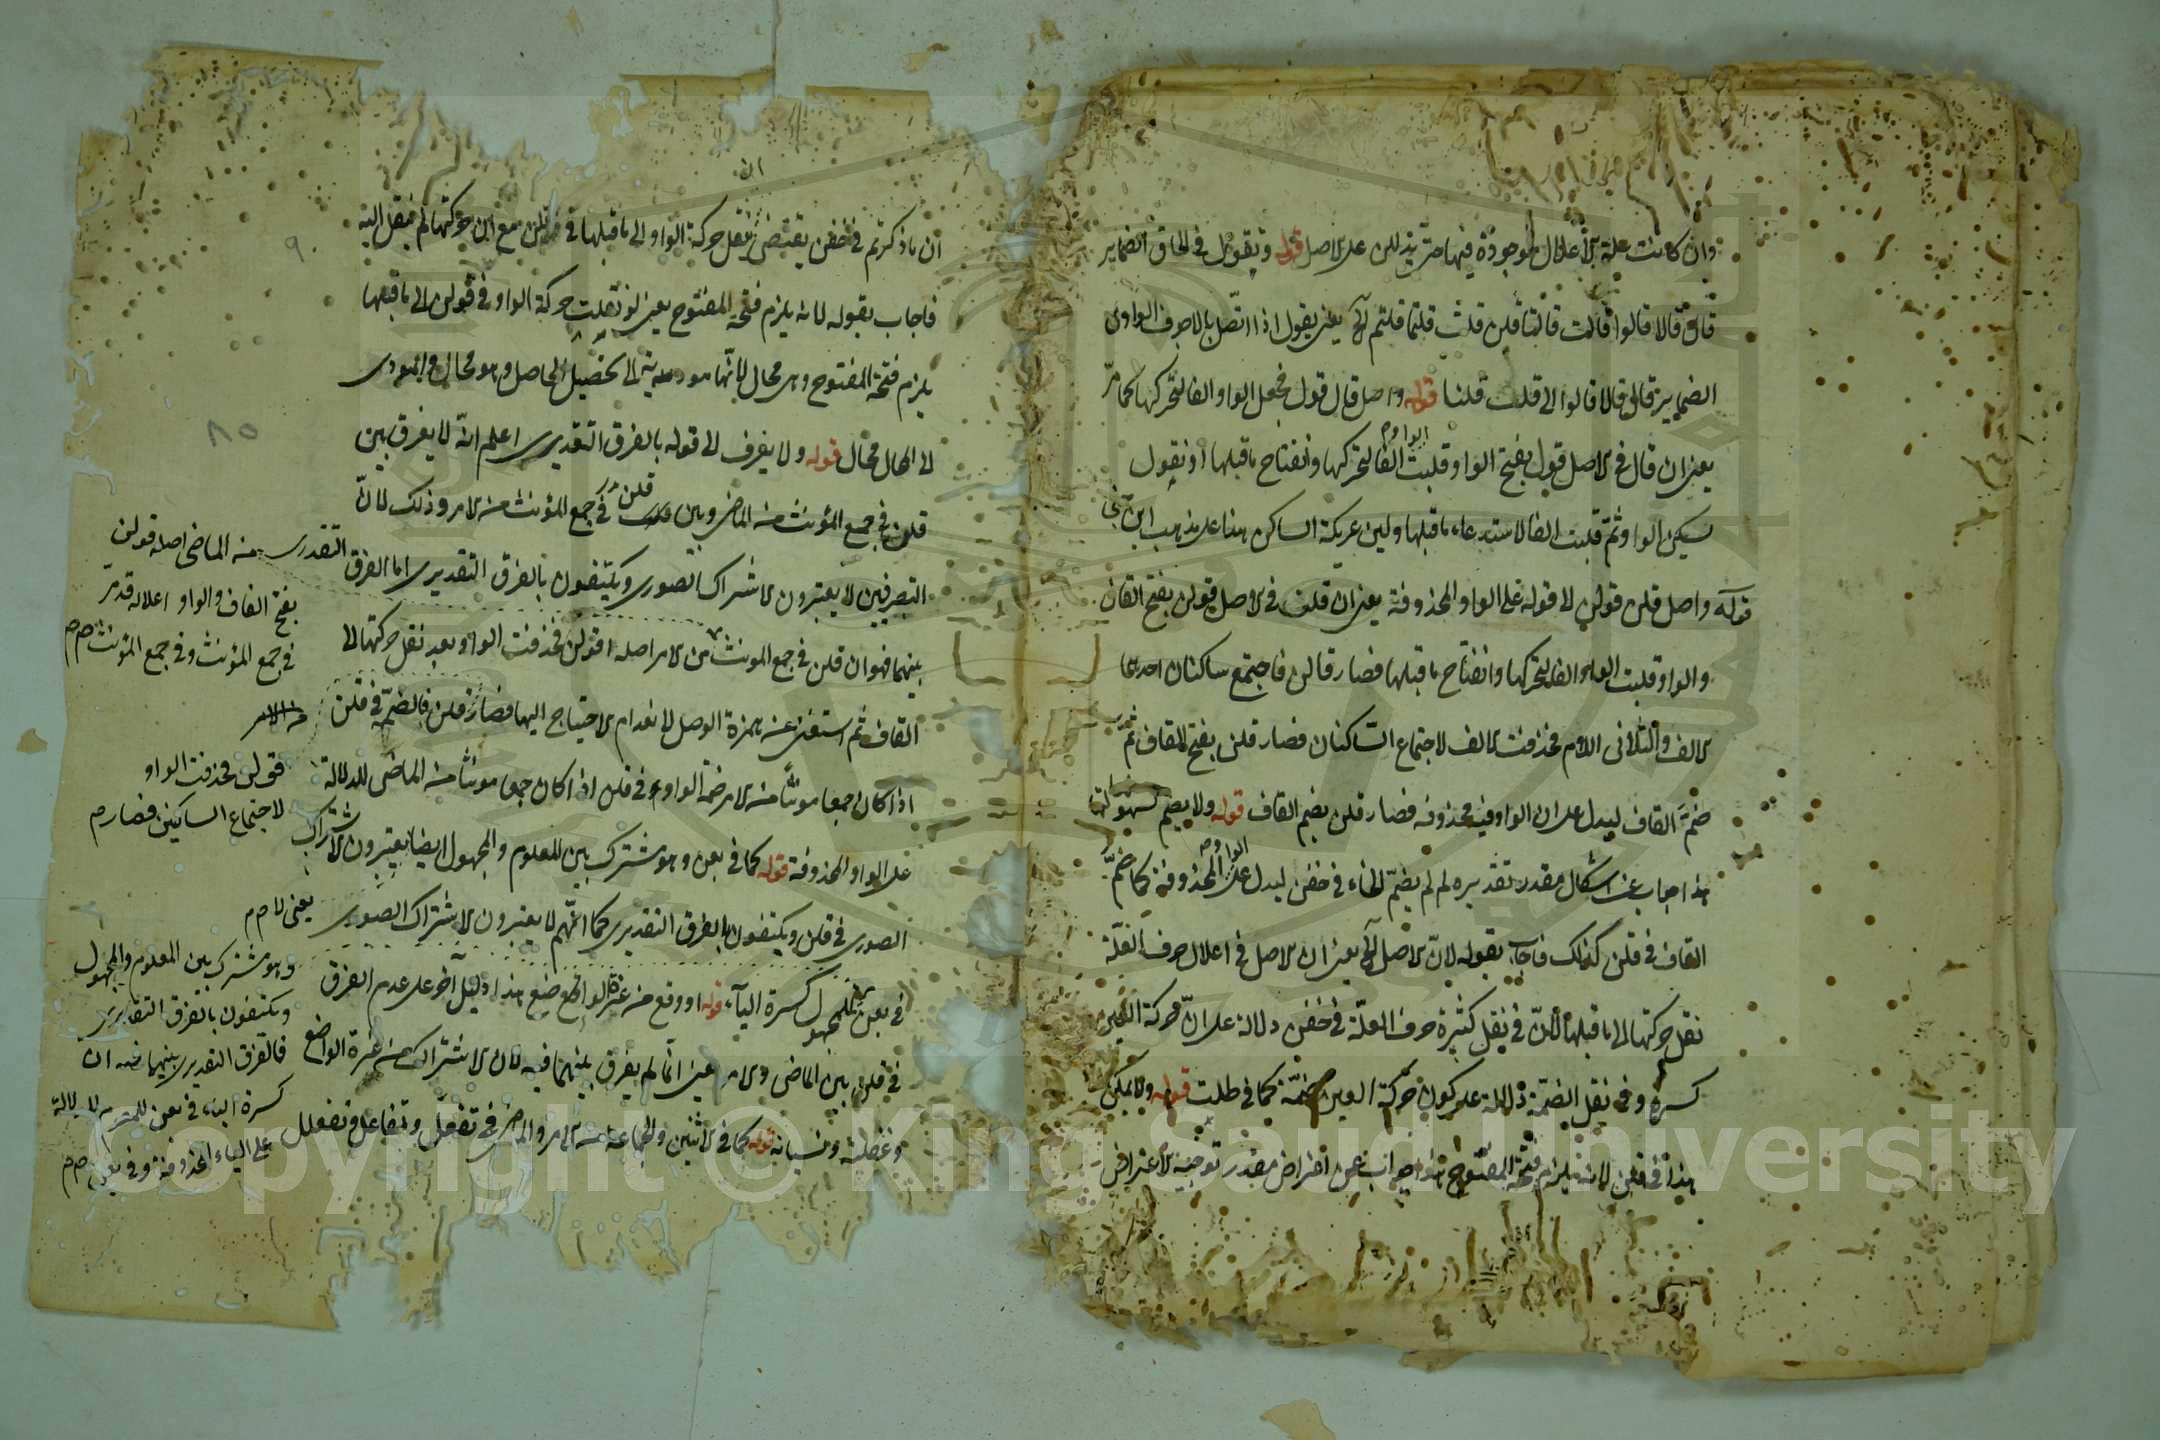 وان كانت علة الاعلال موجودة فيها حتى يدل على الاصل قوله ويقول في الحاق الضماير
قال قالا قالوا قالت قالتا قلن قلت قلتما قلتم الخ يعنى يقول اذا اتصل بالاجوف الواوى
الضماير قال قالا قالوا الى قلت قلنا قوله واصل قال قول فجعل الواو الفا لتحركها كما مر
يعنى ان قال في الاصل قول بفتح الواو قلبت الواو الفا لتحركها وانفتاح ما قبلها او نقول
تسكين الواو ثم قلبت الفا لاستدعاء ما قبلها ولين عريكة الساكن هذا على مذهب ابن جنى
قوله واصل قلن قولن الى قوله على الواو المحذوفة يعنى ان قلن في الاصل قولن بفتح القاف
والواو قلبت الواو الفا لتحركها وانفتاح ما قبلها فصار قالن فاجتمع ساكنان احدهما
الالف والثانى اللام فحذفت الالف لاجتماع الساكنان فصار قلن بفتح القاف ثم
ضمة القاف ليدل على ان الواو فيه محذوفه فصار قلن بضم القاف قوله ولا يضم
هذا جواب عن اشكال مقدر تقديره لم لم يضم الخاء في خفن ليدل على الواو المحذوفة كما ضم
القاف في قلن كذلك فاجاب بقوله لان الاصل الخ يعنى ان الاصل في اعلال حرف العلة
نقل حركتها الى ما قبلها لان في نقل كثيرة حرف العلة في خفن دلالة على ان حركة العين
كسرة وفي نقل الضمة دلالة على كون حركة العين ضمة كما في طلت قوله ولا يمكن
هذا في قلن لانه يلزم فتحة المفتوح هذا جواب عن اعتراض مقدر توجيه الاعتراض
ان ما ذكرتم في خفن يقتضى نقل حركة الواو الى ما قبلها في قلن مع ان حركتها لم ينقل اليه
فاجاب بقوله لانه يلزم فتحة المفتوح يعنى لو نقلت حركة الواو في قولن الى ما قبلها
يلزم فتحة المفتوح وهى محال لانها مودية الى تحصيل الحاصل وهو محال والمودى
الى المحال محال قوله ولا يفرق الى قوله بالفرق التقديرى اعلم انه لا يفرق بين
قلن في جمع المؤنث من الماضى وبين قلن في جمع المؤنث من الامر وذلك لان
التصرفيين لا يعتبرون الاشتراك الصورى ويكتفون بالفرق التقديرى اما الفرق التقدرى
بينهما فهو ان قلن في جمع المونث من الامر اصله اقولن فحذفت الواو بعد نقل حركتها الى
القاف ثم استغنى عن همزة الوصل لانعدام الاحتياج اليها فصار قلن فالضمة في قلن
اذا كان جمعا مونثا من الامر ضمة الواو وفي قلن اذا كان جمعا مونثا من الماضى للدلالة
على الواو المحذوفة قوله كما في بعن وهو مشترك بين المعلوم والمجهول ايضا يعتبرون الاشتراك
الصورى في قلن ويكتفون بالفرق التقديرى كما انهم لا يعتبرون الاشتراك الصورى
في بعن للمجهول كسرة الياء قوله او وقع من غرة الواضع هذا دليل آخر على عدم الفرق
في قلن بين الماضى والامر يعنى انما لم يفرق بينهما فيه لان الاشتراك من غرة الواضع
وغفلته ونسيانه قوله كما في الاثنين والجماعة من الامر والماضى في تفعل وتفاعل وتفعلل
منه الماضى اصله قولن
بفتح القاف والواو اعلاله قد مر
في جمع المؤنث وفي جمع المؤنث
من الامر
فحذفت الواو
لاجتماع الساكنين فصار
يعنى لا
وهو مشترك بين المعلوم والمجهول
ويكتفون بالفرق التقديرى
فالفرق التقديرى بينهما
كسرة الياء في بعن
على الياء المحذوفة وفي بعن
٩٠
٨٥